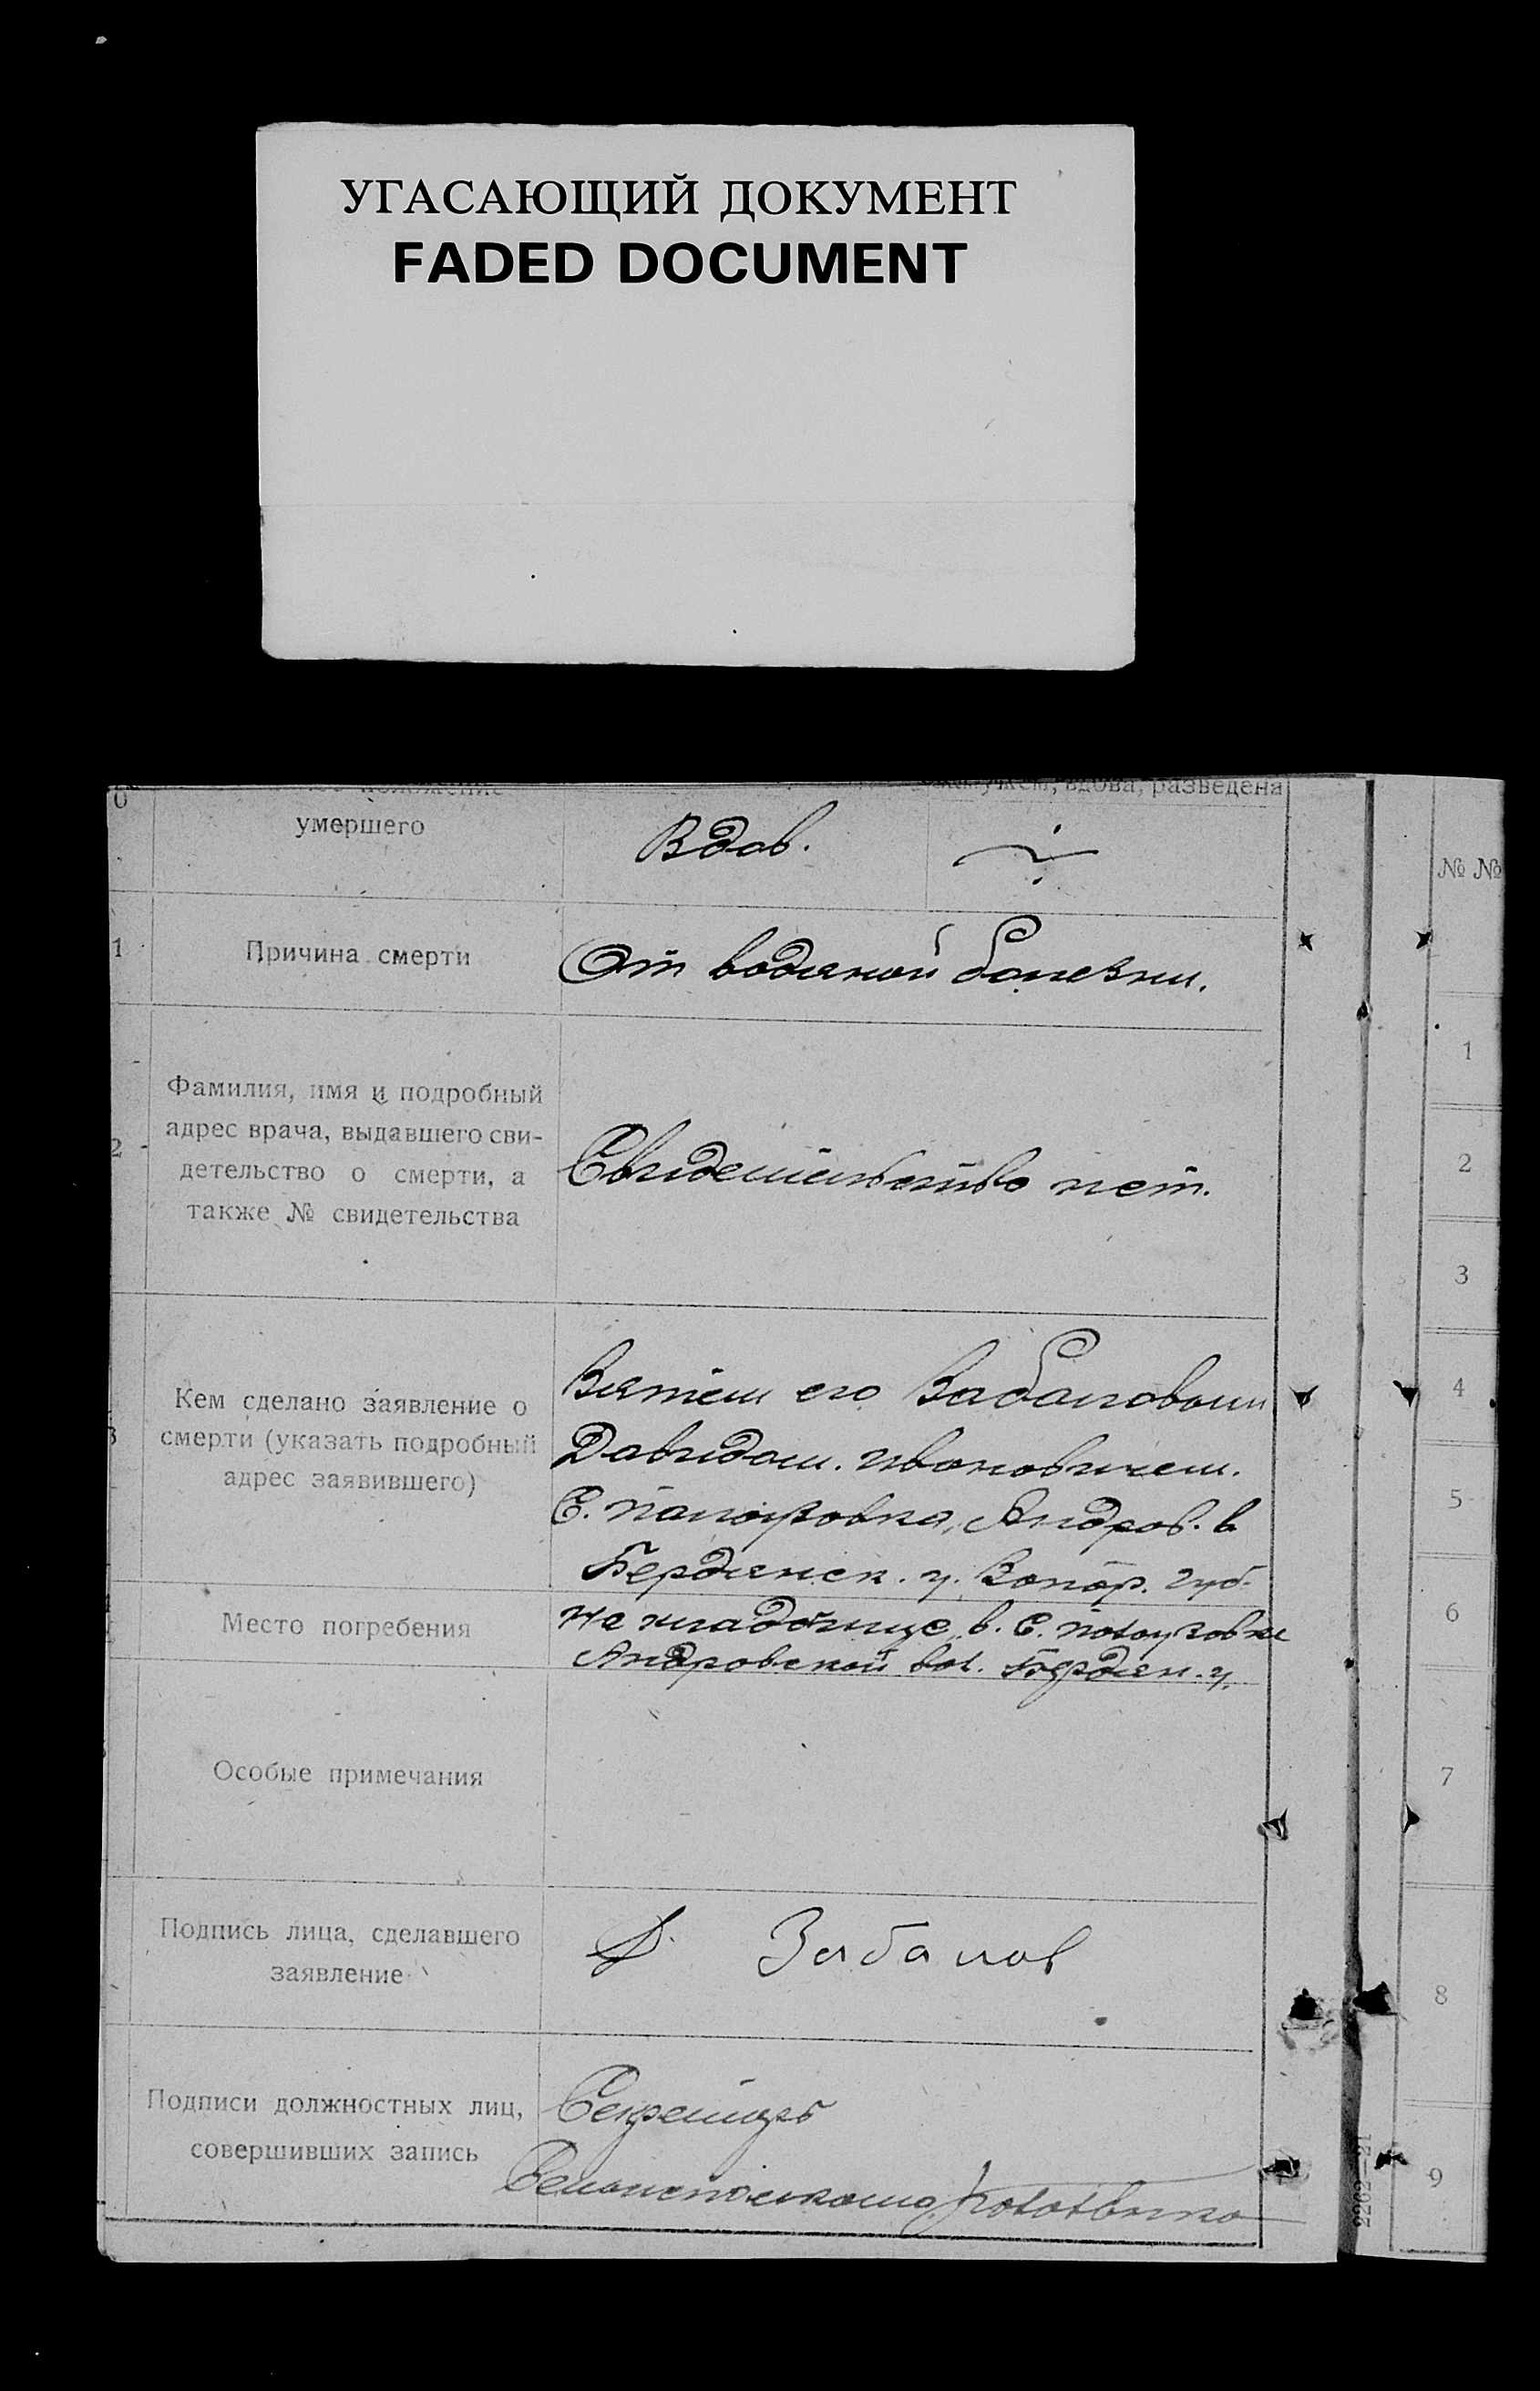 УГАСАЮЩИЙ ДОКУМЕНТ
FADED DOCUMENT
вдова, разведена
умершего
Вдов.
№ №
1
Причина смерти
От водяной болезни.
1
2
Фамилия, имя и подробный
адрес врача, выдавшего сви-
детельство о смерти, а
также № свидетельства
Свидетельство нет.
2
3
3
Кем сделано заявление о
смерти (указать подробный
адрес заявившего)
Зятем его
Давидом. Ивановичем.
С. Андров. в
Бердянск. у. Запор. губ.
4
5
Место погребения
На кладбище в. С.
Андровской вол. Бердян. у.
6
Особые примечания
7
Подпись лица, сделавшего
заявление
Д.
8
Подписи должностных лиц,
совершивших запись
Секретарь
9
2262—21